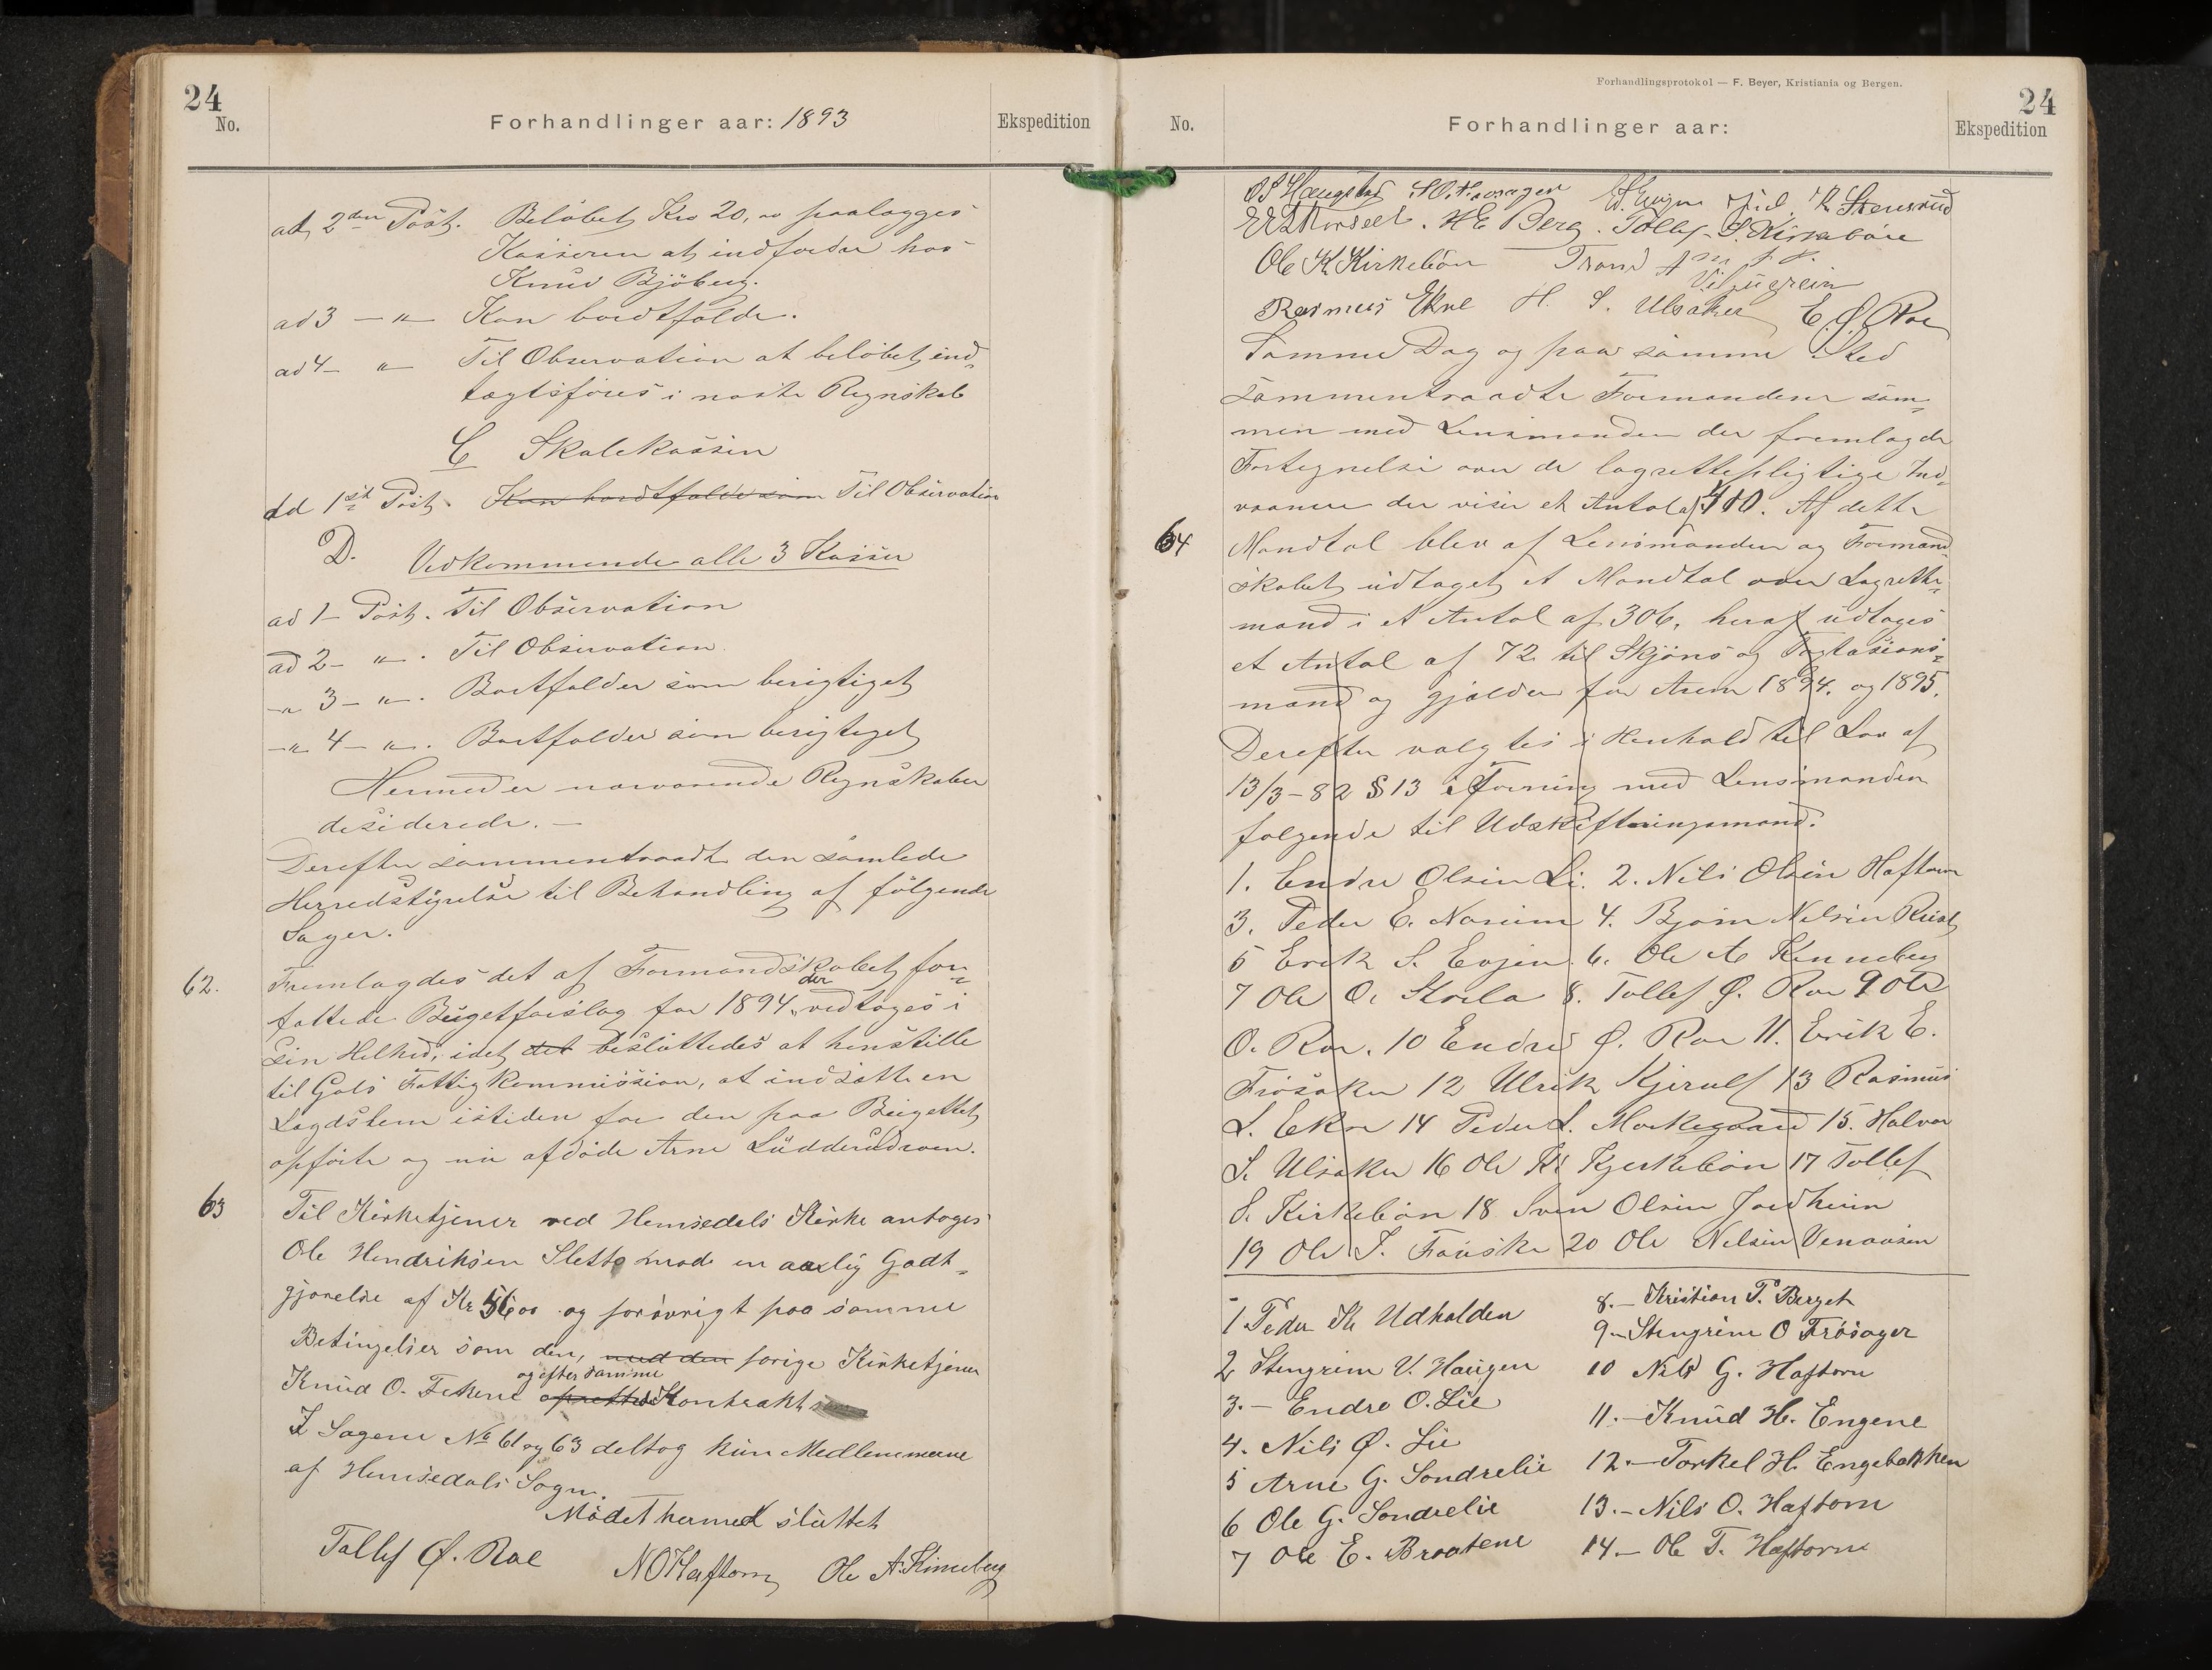 24
No.
Forhandlinger aar: 1893
Ekspedition
ad 2den Post. Beløbet Kro 20,00 paalægges
Kasseren at indfordre hos
Knud Bjöberg.
ad 3 — " — Kan bordtfalde.
ad 4 — " — Til Observation at beløbet ind-
tægtsføres i næste Regnskab
C Skolekassen
Ad 1ste Post. Kan bordtfalde som Til Observation
D. Vedkommende alle 3 Kasser
ad 1 — Post. Til Observation
ad 2 — " — . Til Observation.
— " 3 — " — . Bortfalder som berigtiget
— " 4 — " — . Bortfalder som berigtiget
Hermed er nærværende Regnskaber
desiderede. —
Derefter sammentraadte den samlede
Herredstyrelse til Behandling af følgende
Sager.
62. Fremlagdes det af Formandskabet for-
fattede Bugetforslag for 1894, der vedtoges i
sin Helhed, idet det besluttedes at henstille
til Gols Fattigkommission, at indsætte en
Lægdslem istiden for den paa Bugettet
opførte og nu afdøde Arne Lüdderudroen.
63 Til Kirketjener ved Hemsedals Kirke antoges
Ole Hendriksen Sletto mod en aarlig Godt-
gjørelse af Kr 56 00 og forøvrigt paa samme
Betingelser som den, med den forige Kirketjener
Knud O. Fekene og efter samme oprettede Kontrakt
I Sagerne No 61 og 63 deltog kun Medlemmerne
af Hemsedals Sogn.
Mødet hermed sluttet
Tollef Ø. Roe N O Haftorn Ole A. Kinneberg
Forhandlingsprotokol — F. Beyer, Kristiania og Bergen.
24
No.
Forhandlinger aar:
Ekspedition
H E Berg. Tollef S. Kirkebøen
Ole K Kirkebøen Trond
Rasmus Ekre H. S. Ulsaker E. Ø. Roe
Samme Dag og paa samme Sted
sammentraadte Formændene sam-
men med Lensmanden der fremlagde
Fortegnelse over de lagrettepligtige Ind-
vaanere der viser et Antal af 410. Af dette
64 Mandtal blev af Lensmanden og Formand-
skabet udtaget et Mandtal over Lagrette-
mænd i et Antal af 306, heraf udtages
et Antal af 72 til Skjøns og Taxtasions-
mænd og gjælder for Aaren 1894. og 1895.
Derefter valgtes i Henhold til Lov af
13/3-82 § 13 i Forening med Lensmanden
følgende til Udskiftningsmænd.
1. Endre Olsen Li. 2. Nils Olsen Haftorn
3. Peder E. Norum 4. Bjørn Nilsen Rust
5 Erik S. Evjen. 6. Ole A Kinneberg
7 Ole O. Storla 8. Tollef Ø. Roe 9 Ole
O. Roe. 10 Endre Ø. Roe 11. Erik E.
Frøsaker 12 Ulrik Kjerulf 13 Rasmus
L. Ekre 14 Peder L. Morkegaard 15. Halvor
S. Ulsaker 16 Ole K. Kjerkebøen 17 Tollef
S. Kirkebøen 18 Sven Olsen Jordheim
19 Ole T. Fauske 20 Ole Nelsen Venaasen
1 Peder K. Udhalden
2 Stengrim V. Haugen
3. — Endre O. Lie
4. Nils Ø. Lie
5 Arne G. Søndrelie
6 Ole G. Søndrelie
7 Ole E. Braatene
8. — Kristian T. Berget
9 — Stengrim O Frøsager
10 Nils G. Haftorn
11. — Knud H. Engene
12. — Torkel H. Engebakken
13. — Nils O. Haftorn
14. — Ole T. Haftorne